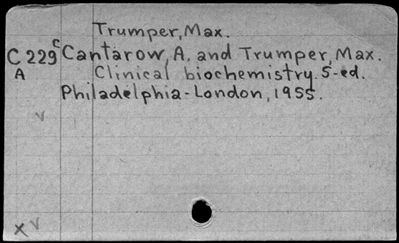 Trumper, Max.
C 229 c Cantarow, A. and Trumper, Max.
A Clinical biochemistry. 5-ed.
Philadelphia-London, 1955.
v
x v